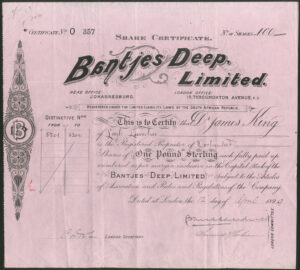 SHARE CERTIFICATE.
CERTIFICATE No. O 357
No. OF SHARES 100
Bantjes Deep,
Limited.
HEAD OFFICE JOHANNESBURG.
LONDON OFFICE
REGISTERED UNDER THE LIMITED LIABILITY LAWS OF THE SOUTH AFRICAN REPUBLIC.
DISTINCTIVE Nos.
FROM TO
This is to Certify that Dr James King
is the Registered Proprietor of One hundred
Shares of One Pound Sterling each fully paid up
in the Capital Stock of the
BANTJES DEEP, LIMITED subject to the Articles
of Association and Rules and Regulations of the Company
Dated at London the 12 day of April
LONDON SECRETARY
B